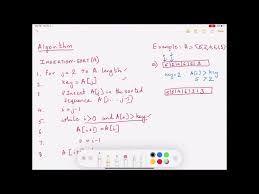 Algorithm
INSERTION-SORT(A)
1. for j = 2 to A.length
2. key = A[j]
3. // Insert A[j] in the sorted
sequence A[1..j-1]
4. i = j-1
5. while i>0 and A[i]>key
6. A[i+1] = A[i]
7. i = i-1
8. A[i+1]
Example: A =
a)
key=2 A[i] > key
5 > 2